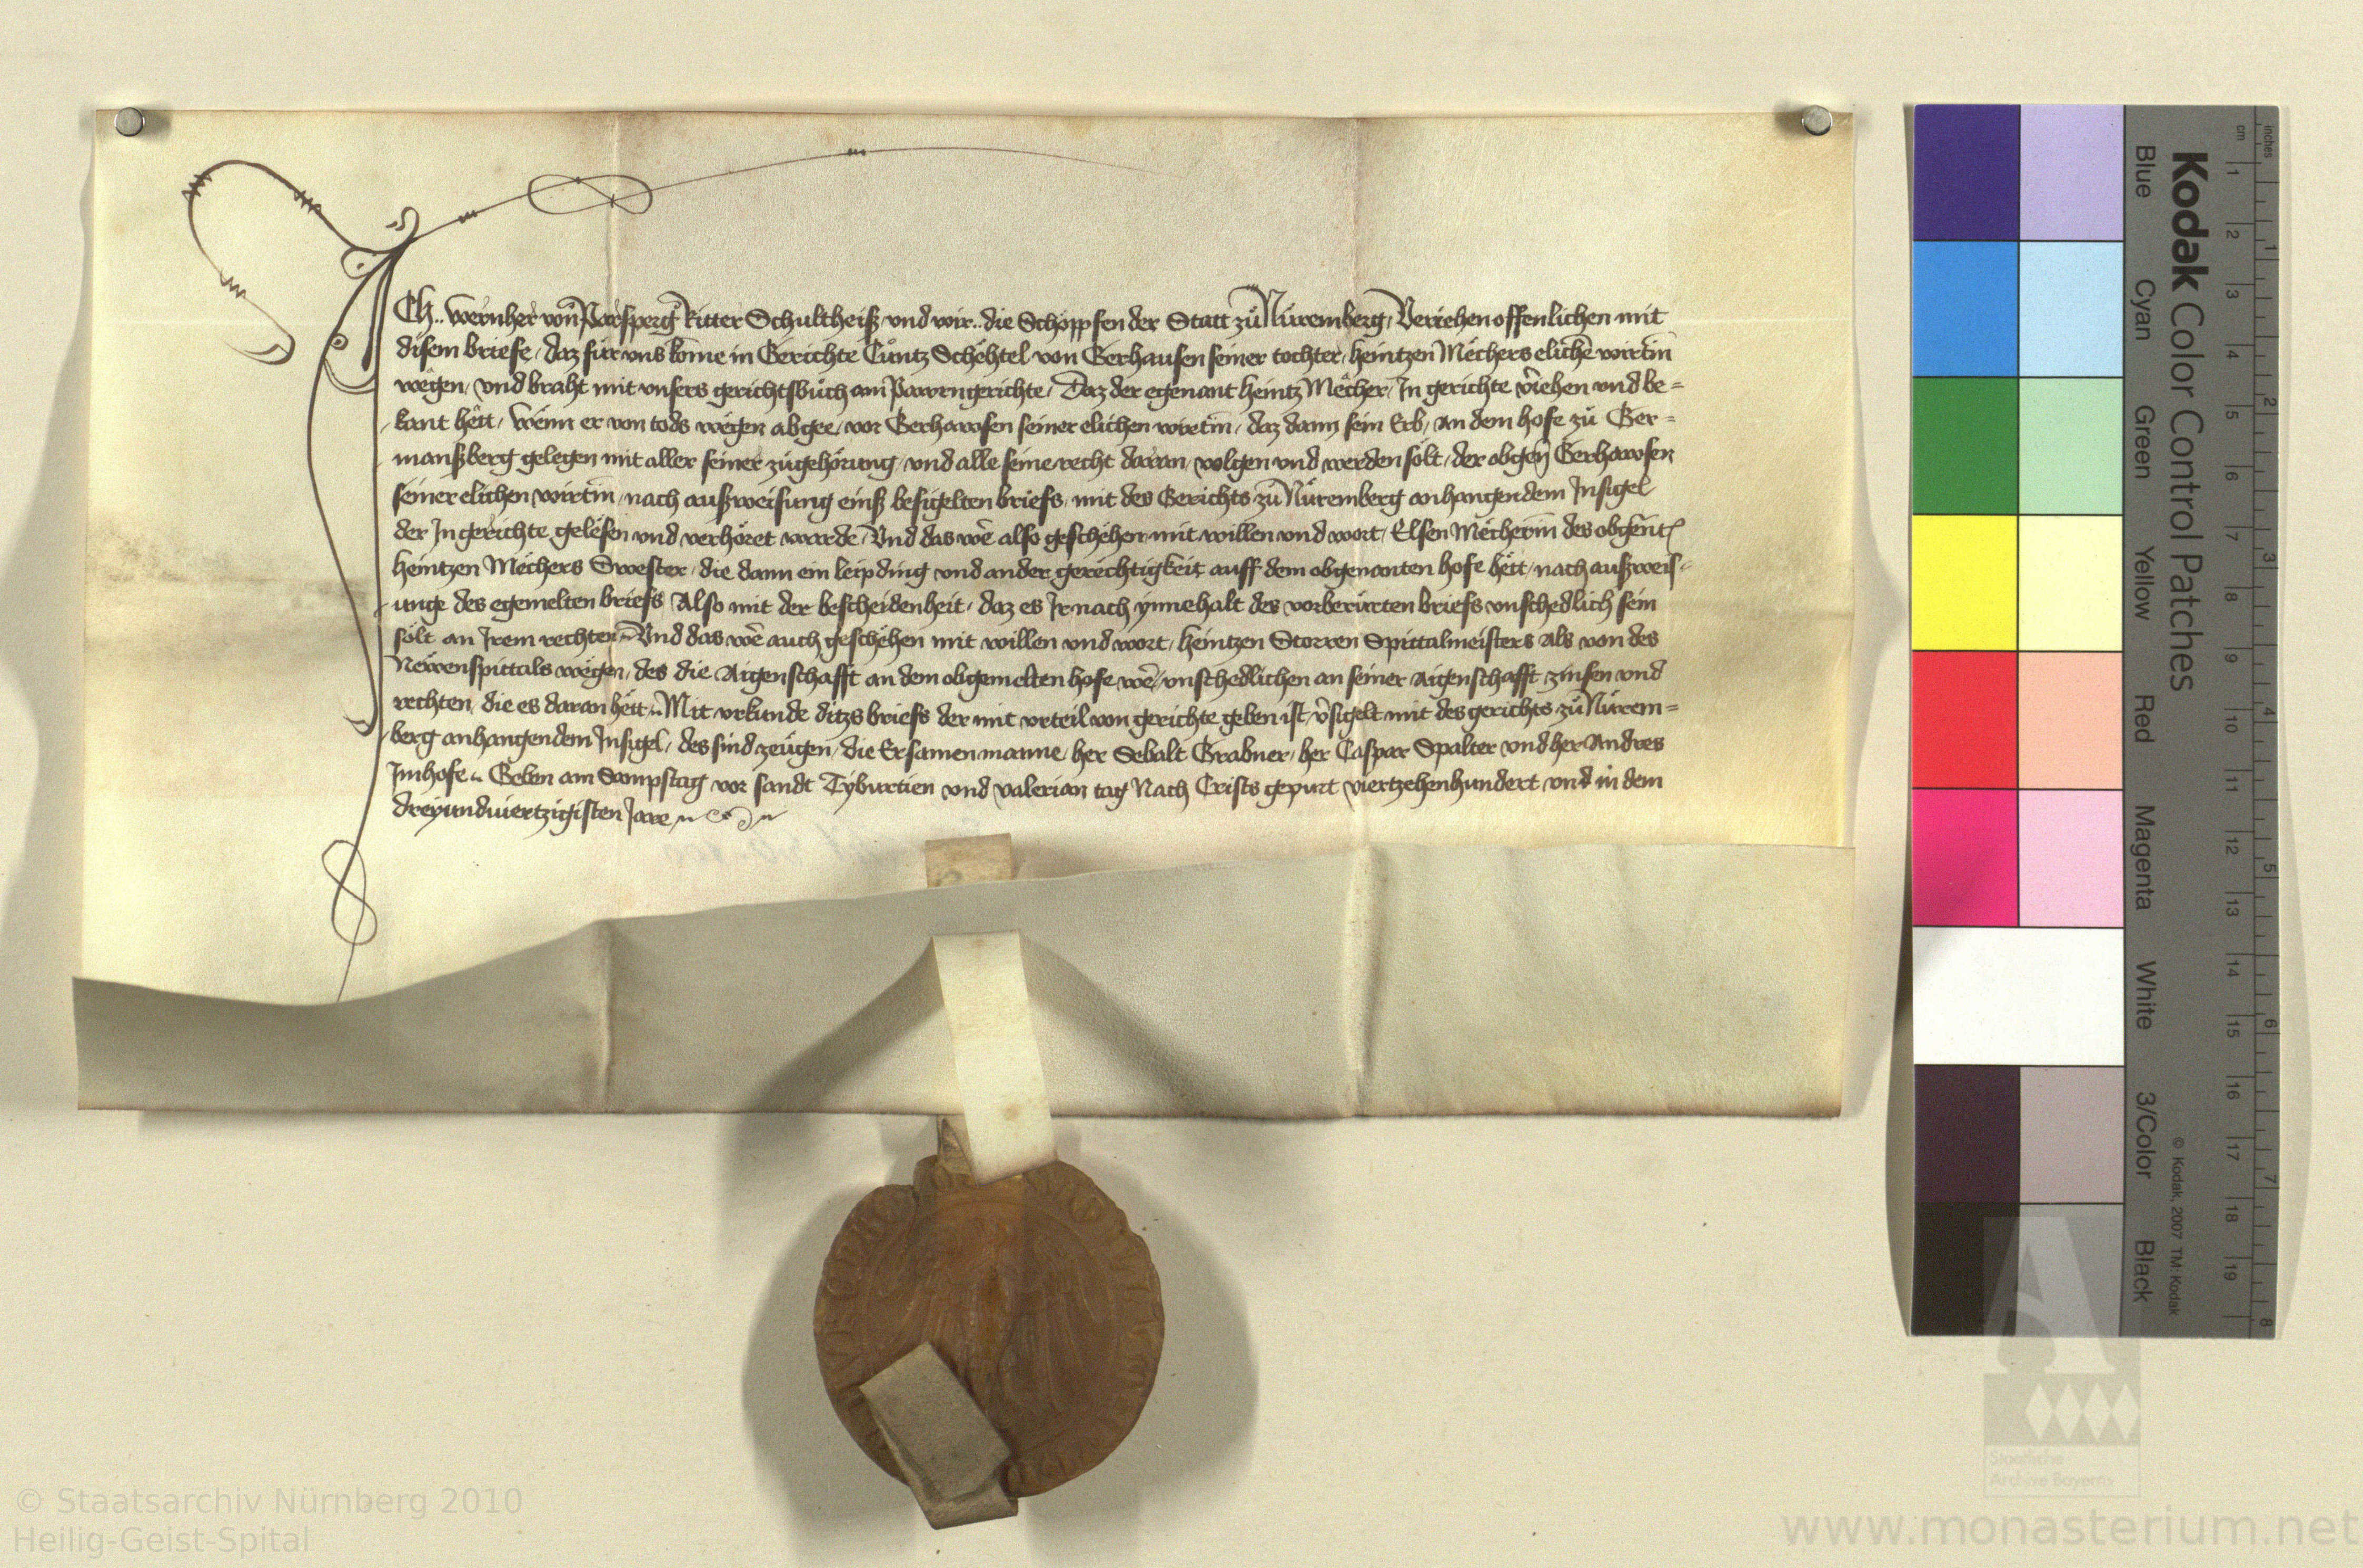 ICh.. Wernher von Parsperg Ritter Schultheiß und wir.. die Schöppfen der Statt zů Nüremberg, Veriehen offenlichen mit
disem briefe, daz für uns kome in Gerichte Cůntz Schëhtel von Gerhausen seiner tochter, heintzen Mëchers elichē wirtin
wegen, und braht mit unsers gerichtsbůch am Pawrngerichte, Daz der egenant heintz Mëcher, In gerichte v̄iehen und be=
kant hett, Wenn er von tods wegen abgee, vor Gerhawsen seiner elichen wirtin, daz dann sein Erb, an dem hofe zů Ger=
manßberg gelegen mit aller seiner zůgehörung, und alle seine recht daran, volgen und werden sölt, der obgen̄ Gerhawsen
seiner elichen wirtin, nach außweisung einß besigelten briefs, mit des Gerichts zů Nüremberg anhangendem Insigel
der In gerichte gelesen und verhöret wurde, Und das wē also geschehen mit willen und wort, Elsen Mëcherin des obgent̄
heintzen Mëchers Swester, die dann ein leipding und ander gerechtigkeit auff dem obgenanten hofe hett, nach außweis=
unge des egemelten briefs Also mit der bescheidenheit, daz es Ir nach ynnehalt des vorberürten briefs unschedlich sein
sölt an Irem rechten, Und das wē auch geschehen mit willen und wort, heintzen Storren Spittalmeisters als von des
Newenspittals wegen, des die Aigenschafft an dem obgemelten hofe wē, unschedlichen an seiner Aigenschafft zinsen und
rechten, die es daran hett, Mit urkunde ditzs briefs der mit urteil von gerichte geben ist, v̄sigelt mit des gerichts zů Nürem=
berg anhangendem Insigel, des sind zeügen, die Ersamen manne, her Sebalt Grabner, her Caspar Spalter und her Andres
Imhofe. Geben am Sampstag vor sandt Tyburtien und valerian tag Nach Crists gepurt viertzehenhundert und in dem
dreyundviertzigisten Jare
Kodak Color Control Patches
© Kodak, 2007 TM: Kodak
Blue Cyan Green Yellow Red Magenta White 3/Color Black
cm 1 2 3 4 5 6 7 8 9 10 11 12 13 14 15 16 17 18 19
inches 1 2 3 4 5 6 7 8
Staatliche
Archive Bayerns
© Staatsarchiv Nürnberg 2010
Heilig-Geist-Spital
www.monasterium.net